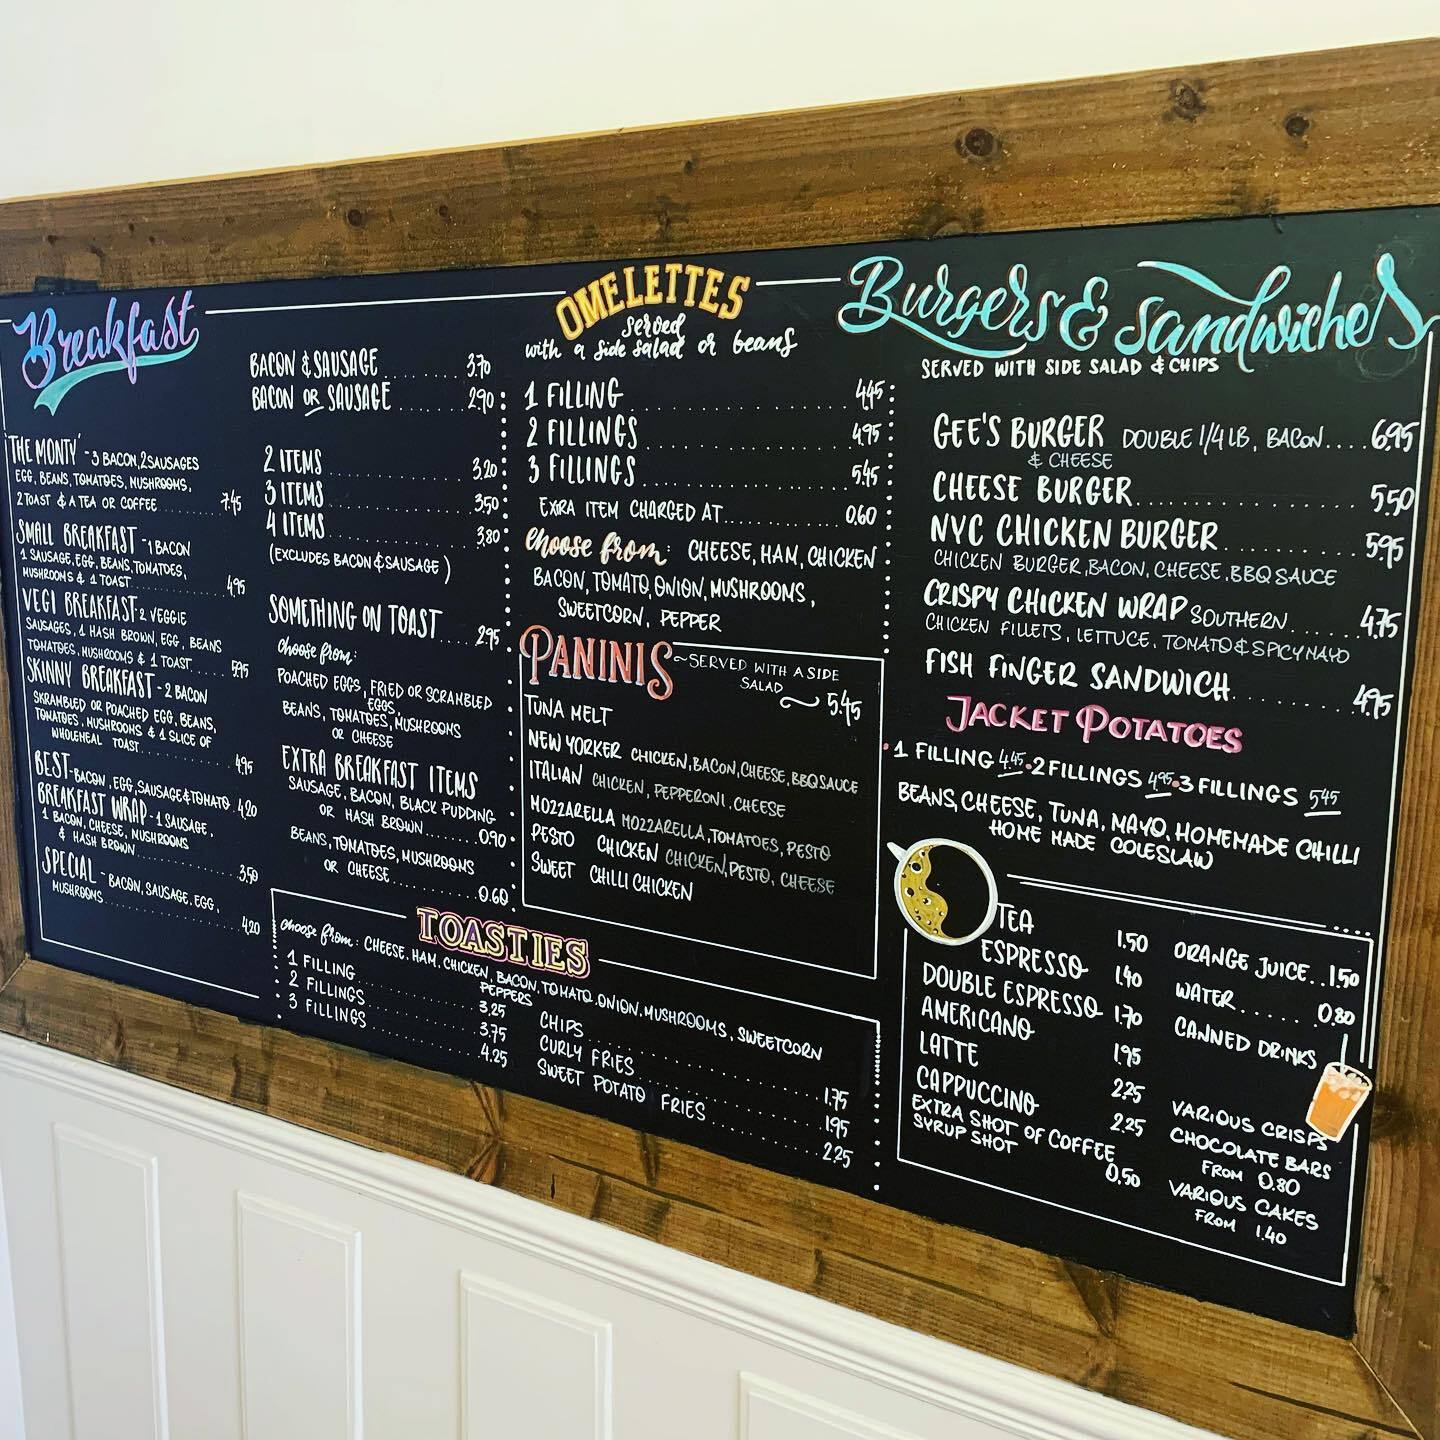 Breakfast
'THE MONTY' - 3 BACON, 2 SAUSAGES
EGG, BEANS, TOMATOES, MUSHROOMS,
2 TOAST & A TEA OR COFFEE ........ 7.45
SMALL BREAKFAST - 1 BACON
1 SAUSAGE, EGG, BEANS, TOMATOES,
MUSHROOMS & 1 TOAST ........ 4.95
VEGI BREAKFAST 2 VEGGIE
SAUSAGES, 1 HASH BROWN, EGG, BEANS
TOMATOES, MUSHROOMS & 1 TOAST .... 5.95
SKINNY BREAKFAST - 2 BACON
SKRAMBLED OR POACHED EGG, BEANS,
TOMATOES, MUSHROOMS & 1 SLICE OF
WHOLEMEAL TOAST ........ 4.95
BEST - BACON, EGG, SAUSAGE & TOMATO 4.20
BREAKFAST WRAP - 1 SAUSAGE,
1 BACON, CHEESE, MUSHROOMS
& HASH BROWN ........ 3.50
SPECIAL - BACON, SAUSAGE, EGG,
MUSHROOMS ........ 4.20
BACON & SAUSAGE ........ 3.70
BACON OR SAUSAGE ....... 2.90
2 ITEMS ........ 3.20
3 ITEMS ........ 3.50
4 ITEMS ........ 3.80
(EXCLUDES BACON & SAUSAGE)
SOMETHING ON TOAST .... 2.95
Choose from:
POACHED EGGS, FRIED OR SCRAMBLED
EGGS,
BEANS, TOMATOES, MUSHROOMS
OR CHEESE
EXTRA BREAKFAST ITEMS
SAUSAGE, BACON, BLACK PUDDING
OR HASH BROWN ....... 0.90
BEANS, TOMATOES, MUSHROOMS
OR CHEESE ......... 0.60
OMELETTES
served
with a side salad or beans
1 FILLING ........ 4.45
2 FILLINGS ........ 4.95
3 FILLINGS ........ 5.45
EXRA ITEM CHARGED AT ........ 0.60
Choose from: CHEESE, HAM, CHICKEN
BACON, TOMATO, ONION, MUSHROOMS,
SWEETCORN, PEPPER
PANINIS ~ SERVED WITH A SIDE
SALAD ~ 5.45
TUNA MELT
NEW YORKER CHICKEN, BACON, CHEESE, BBQ SAUCE
ITALIAN CHICKEN, PEPPERONI, CHEESE
MOZZARELLA MOZZARELLA, TOMATOES, PESTO
PESTO CHICKEN CHICKEN, PESTO, CHEESE
SWEET CHILLI CHICKEN
TOASTIES
Choose from: CHEESE, HAM, CHICKEN, BACON, TOMATO, ONION, MUSHROOMS, SWEETCORN
PEPPERS
1 FILLING ........ 3.25
2 FILLINGS ........ 3.75
3 FILLINGS ........ 4.25
CHIPS ........ 1.75
CURLY FRIES ........ 1.95
SWEET POTATO FRIES ........ 2.25
Burgers & Sandwiches
SERVED WITH SIDE SALAD & CHIPS
GEE'S BURGER DOUBLE 1/4 LB, BACON .... 6.95
& CHEESE
CHEESE BURGER ........ 5.50
NYC CHICKEN BURGER ........ 5.95
CHICKEN BURGER, BACON, CHEESE, BBQ SAUCE
CRISPY CHICKEN WRAP SOUTHERN ....... 4.75
CHICKEN FILLETS, LETTUCE, TOMATO & SPICY MAYO
FISH FINGER SANDWICH ........ 4.95
JACKET POTATOES
• 1 FILLING 4.45 • 2 FILLINGS 4.95 • 3 FILLINGS 5.45
BEANS, CHEESE, TUNA, MAYO, HOMEMADE CHILLI
HOME MADE COLESLAW
TEA 1.50
ESPRESSO 1.40
DOUBLE ESPRESSO 1.70
AMERICANO 1.95
LATTE 2.25
CAPPUCCINO 2.25
EXTRA SHOT OF COFFEE
SYRUP SHOT 0.50
ORANGE JUICE .. 1.50
WATER ....... 0.80
CANNED DRINKS
VARIOUS CRISPS
CHOCOLATE BARS
FROM 0.80
VARIOUS CAKES
FROM 1.40